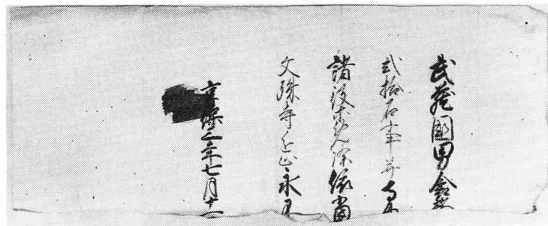 武蔵國男衾郡
弐拾石事并寺中
諸役等免除依當
文殊寺進止永不
享保三年七月十一